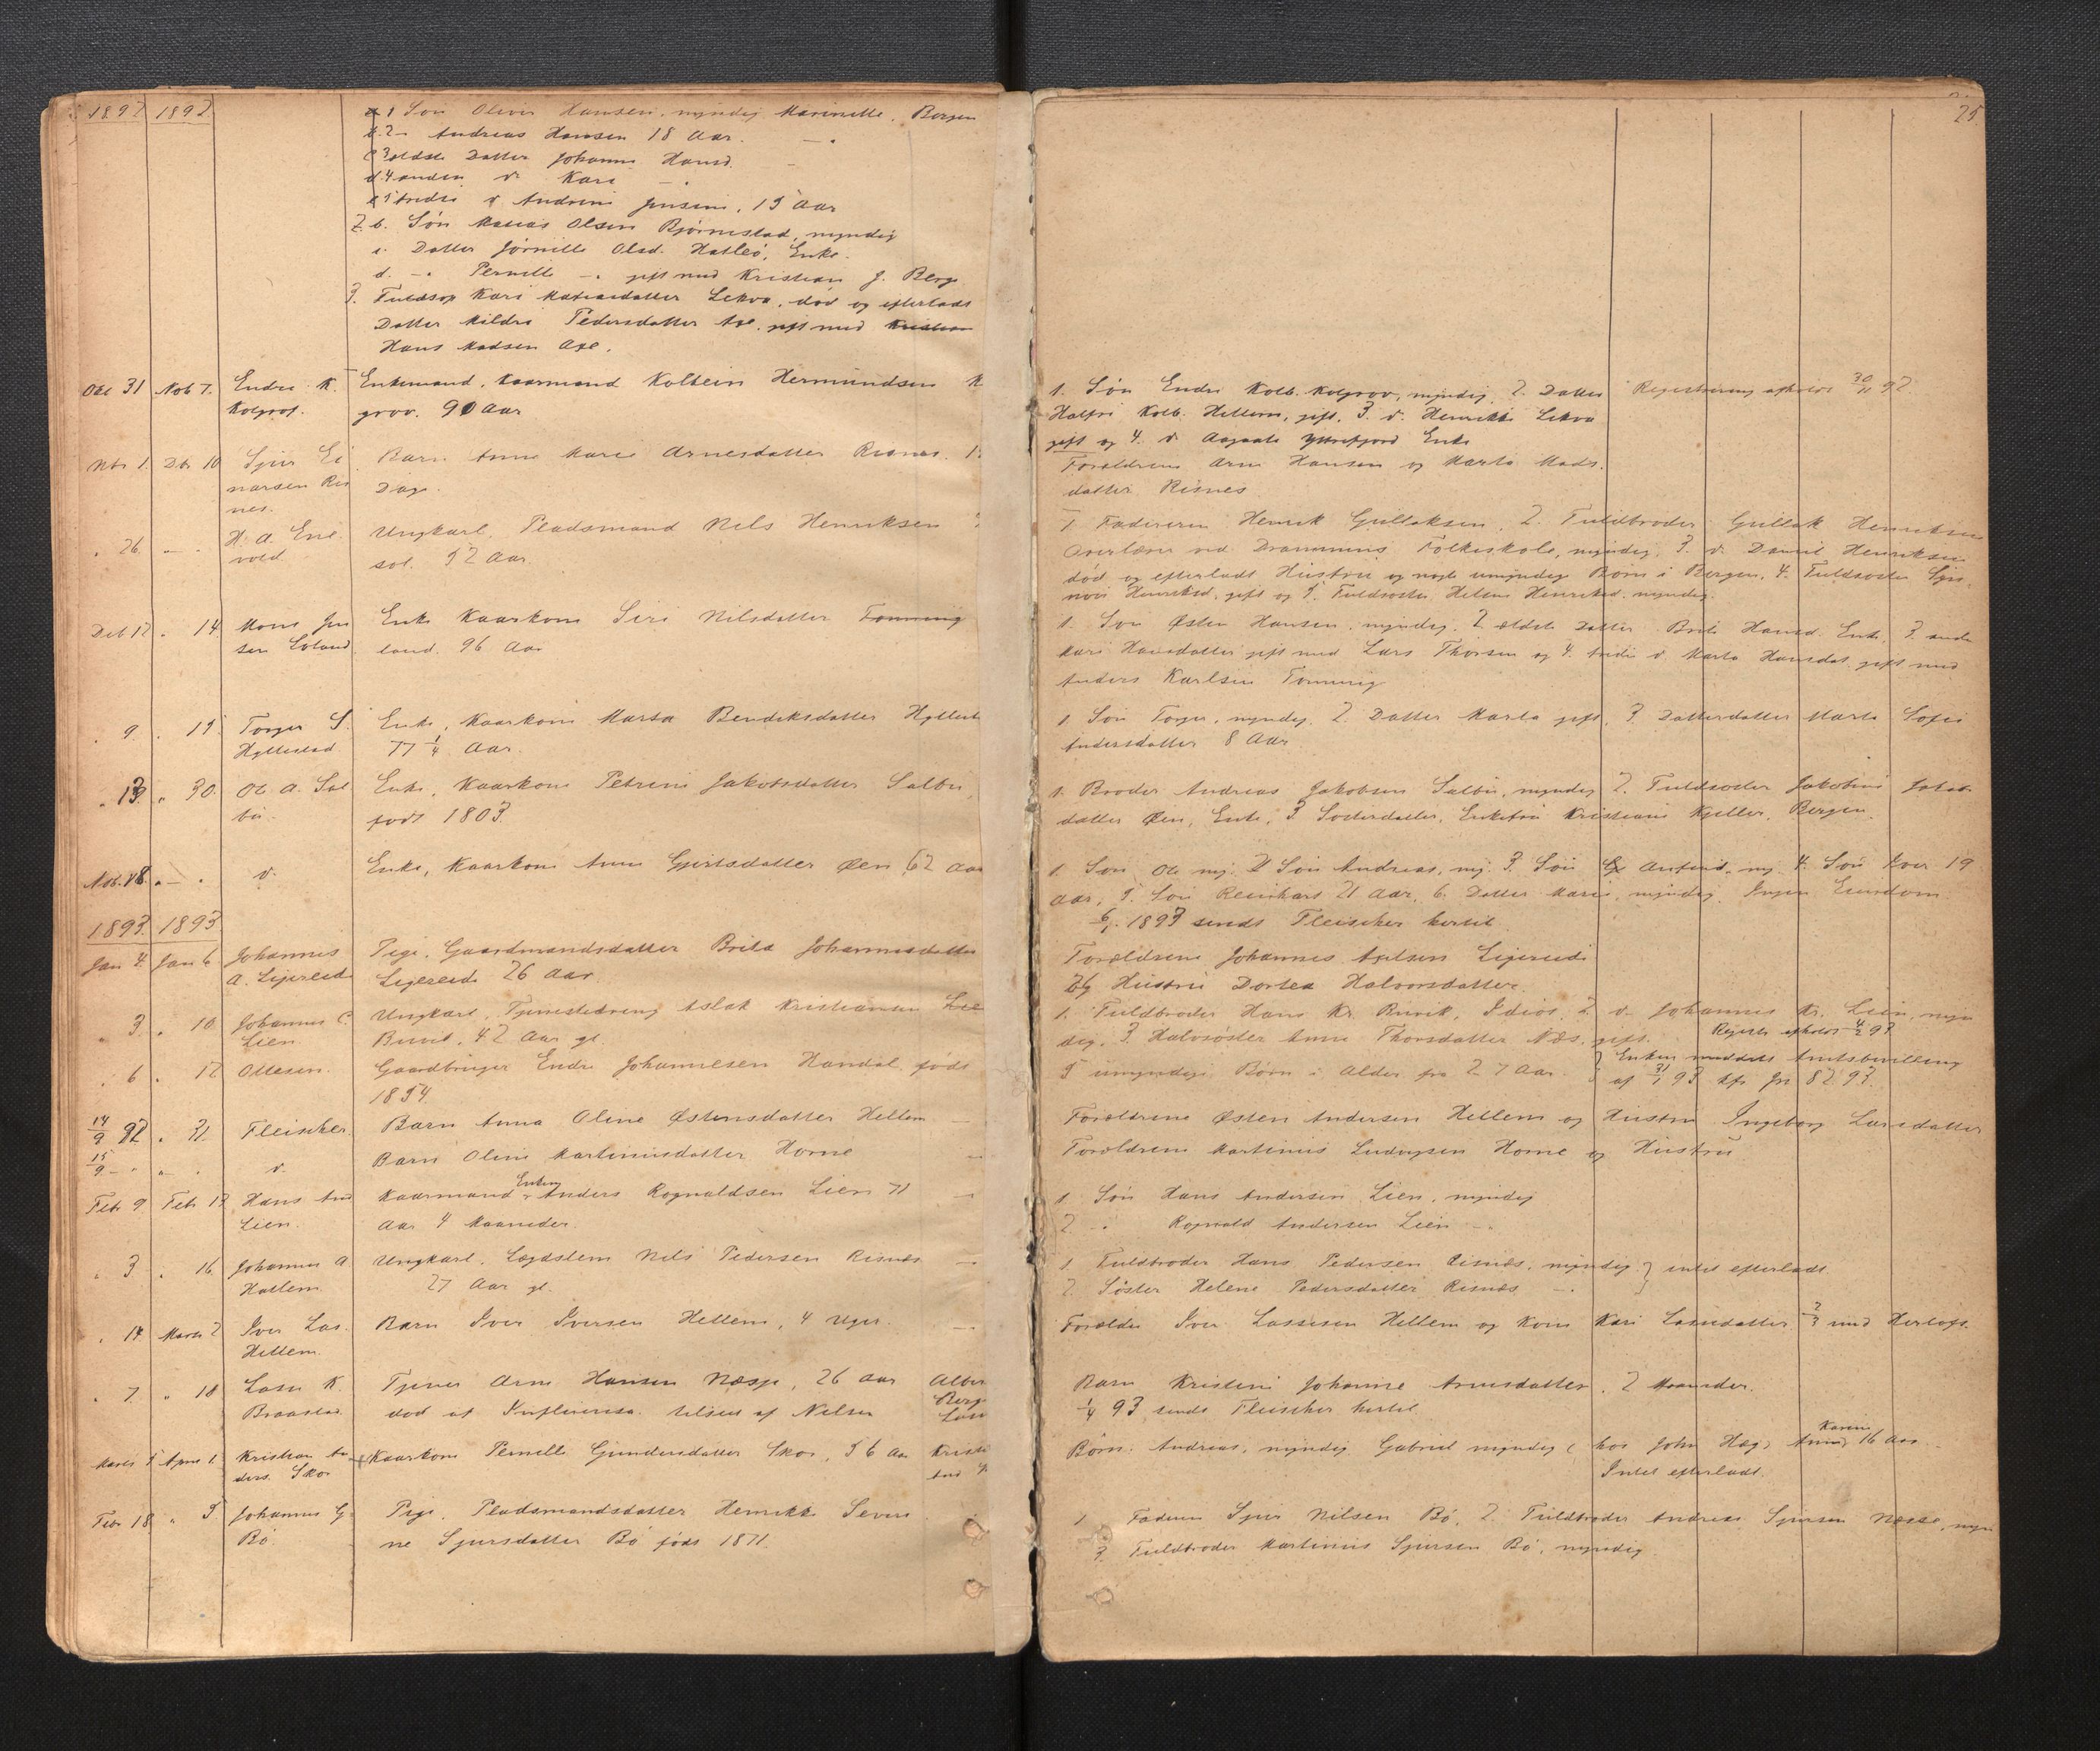 1892 1892
1 Søn Oliver Hansen, myndig Marinelle, Bergen
2 - Andreas Hansen 18 Aar. - "
3 ældste Datter Johanne Hansd. -
4 anden d: Kari - "
5 tredie d Andrine Jensine, 15 Aar
2. b. Søn Matias Olsen Bjørnestad, myndig
c. Datter Jørnille Olsd. Hatleö, Enke.
d. -" Pernille -" gift med Kristian J. Berge
3. Fuldsøs Kari Matiasdatter Lekva, död og efterladt
Datter Mildri Pedersdatter Aae, gift med Kristian
Hans Madsen Aae.
Okt 31 Nob 7. Endre K. Kolgrof.
Enkemand, Kaarmand Kolbein Hermundsen K
grov. 90 Aar
Nbr 1. Dbr 10 Sjur Ei
narsen Ris
nes.
Barn Anne Marie Arnesdatter Risnes.
Dage.
" 26. - " H. A. Ene
vold.
Ungkarl, Pladsmand Nils Henriksen
sol. 52 Aar
Deb 12 " 14 Mons Jen
sen Loland
Enke Kaarkone Siri Nilsdatter Tonning
land. 96 Aar
" 9. " 15. Torger S.
Hyllestad
Enke, Kaarkone Marta Bendiksdatter Hyllest
77 1/4 Aar.
" 13. " 30. Ole A. Sal
bu.
Enke, Kaarkone Petrine Jakobsdatter Salbu,
født 1803.
Nob. 18. " - " d.
Enke, Kaarkone Anne Gjertsdatter Øen 62 Aar
1893. 1893
Jan 4. Jan 6 Johannes
A. Ligereide
Pige, Gaardmandsdatter Brita Johannesdatter
Ligereide 26 Aar.
" 3. " 10. Johannes C.
Lien
Ungkarl, Tjenestedreng Aslak Kristiansen Lie
42 Aar gl.
" 6 " 12 Ottesen.
Gaardbruger Endre Johannesen Handal, født
1854.
14/9 92 " 31. Fleischer.
Barn Anna Oline Østensdatter Hellem
15/9 - " " - " d.
Barn Oline Martinusdatter Horne -
Feb 9. Feb 13 Hans And
Lien.
Kaarmand Enkem Anders Rognaldsen Lien 71 -
Aar 4 Maaneder.
" 3 " 16 Johannes A
Hatlem
Ungkarl, Lægdslem Nils Pedersen Risnes -
27 Aar gl.
" 14. Marts 2 Iver Las.
Hellem.
Barn Iver Iversen Hellem, 4 Uger. -
" 7 " 18 Lasse K.
Braastad
Tjener Arne Hansen Næsje, 26 Aar
død af Influensa. tilsted af Nelsen
Marts 5 April 1. Kristian An
ders. Skor
Kaarkone Pernille Gundersdatter Skor, 56 Aar Kristi
Febr 18 " 5 Johannes G.
Bö.
Pige, Pladsmandsdatter Henrikke Seve
ne Sjursdatter Bö født 1871.
25.
1. Søn Endre Kolb. Kolgrov, myndig. 2. Datter Registrering afholdt 30/11 92
Halfri Kolb. Hellem, gift, 3. d. Henrikke Lekva
gift og 4. d. Aagaate Yttrefjord Enke
Forældrene Arne Hansen og Marta Mads.
datter Risnes
1. Faderen Henrik Gullaksen, 2. Fuldbroder Gullak Henriksen
Overlærer ved Drammens Folkeskole, myndig, 3. d. Daniel Henriksen
död og efterladt Hustru og nogle umyndige Børn i Bergen, 4. Fuldsøster Syn
növ Henriksd. gift og 5. Fuldsøster Helene Henriksd. myndig.
1. Søn Østen Hansen, myndig. 2 ældste Datter Brite Hansd. Enke, 3. anden
Kari Hansdatter gift med Lars Thorsen og 4. tredie d. Marta Hansdat. gift med
Anders Karlsen Tonning
1. Søn Torger, myndig. 2. Datter Marta gift, 3. Datterdatter Marta Sofie
Andersdatter 8 Aar
1. Broder Andreas Jakobsen Salbu, myndig 2. Fuldsøster Jakobine Jakob
datter Øen, Enke, 3 Søsterdatter, Enkefru Kristiane Kjeller, Bergen.
1. Søn Ole my. 2 Søn Andreas, my. 3. Søn Anfind. my. 4. Søn Iver 19
Aar, 5. Søn Reinhart 21 Aar, 6. Datter Marie, myndig. Ingen Eiendom
1893 sendt Fleischer hertil.
Forældrene Johannes Axelsen Ligereide
og Hustru Dortea Halvorsdatter.
1. Fuldbroder Hans Kr. Risvik, Idiot, 2. d. Johannes Kr. Lien, myn
dig, 3. Halvsøster Anne Thorsdatter Næs, gift. Registr. afholdt 4/2 93
5 umyndige Børn i Alder fra 2-7 Aar. } Enken meddelt Amtsbevilling
af 31/1 93 82.93.
Forældrene Østen Andersen Hellem og Hustru Ingeborg Larsdatter
Forældrene Martinus Ludvigsen Horne og Hustru
1. Søn Hans Andersen Lien, myndig
2 " Rognald Andersen Lien - "
1. Fuldbroder Hans Pedersen Risnes, myndig } intet efterladt
2. Søster Helene Pedersdatter Risnes - "
Forældre Iver Lassesen Hellem og Kone Kari Larsdatter 2/3 med Herlofs.
Barn Kristine Johanne Arnesdatter, 2 Maaneder.
1/4 93 sendt Fleischer hertil
Børn: Andreas, myndig Gabriel myndig ( hos John Hæg) Karine 16 Aar
Intet efterladt.
1 Faderen Sjur Nilsen Bö, 2. Fuldbroder Andreas Sjursen Næsse, myn
3. Fuldbroder Martinus Sjursen Bö, myndig